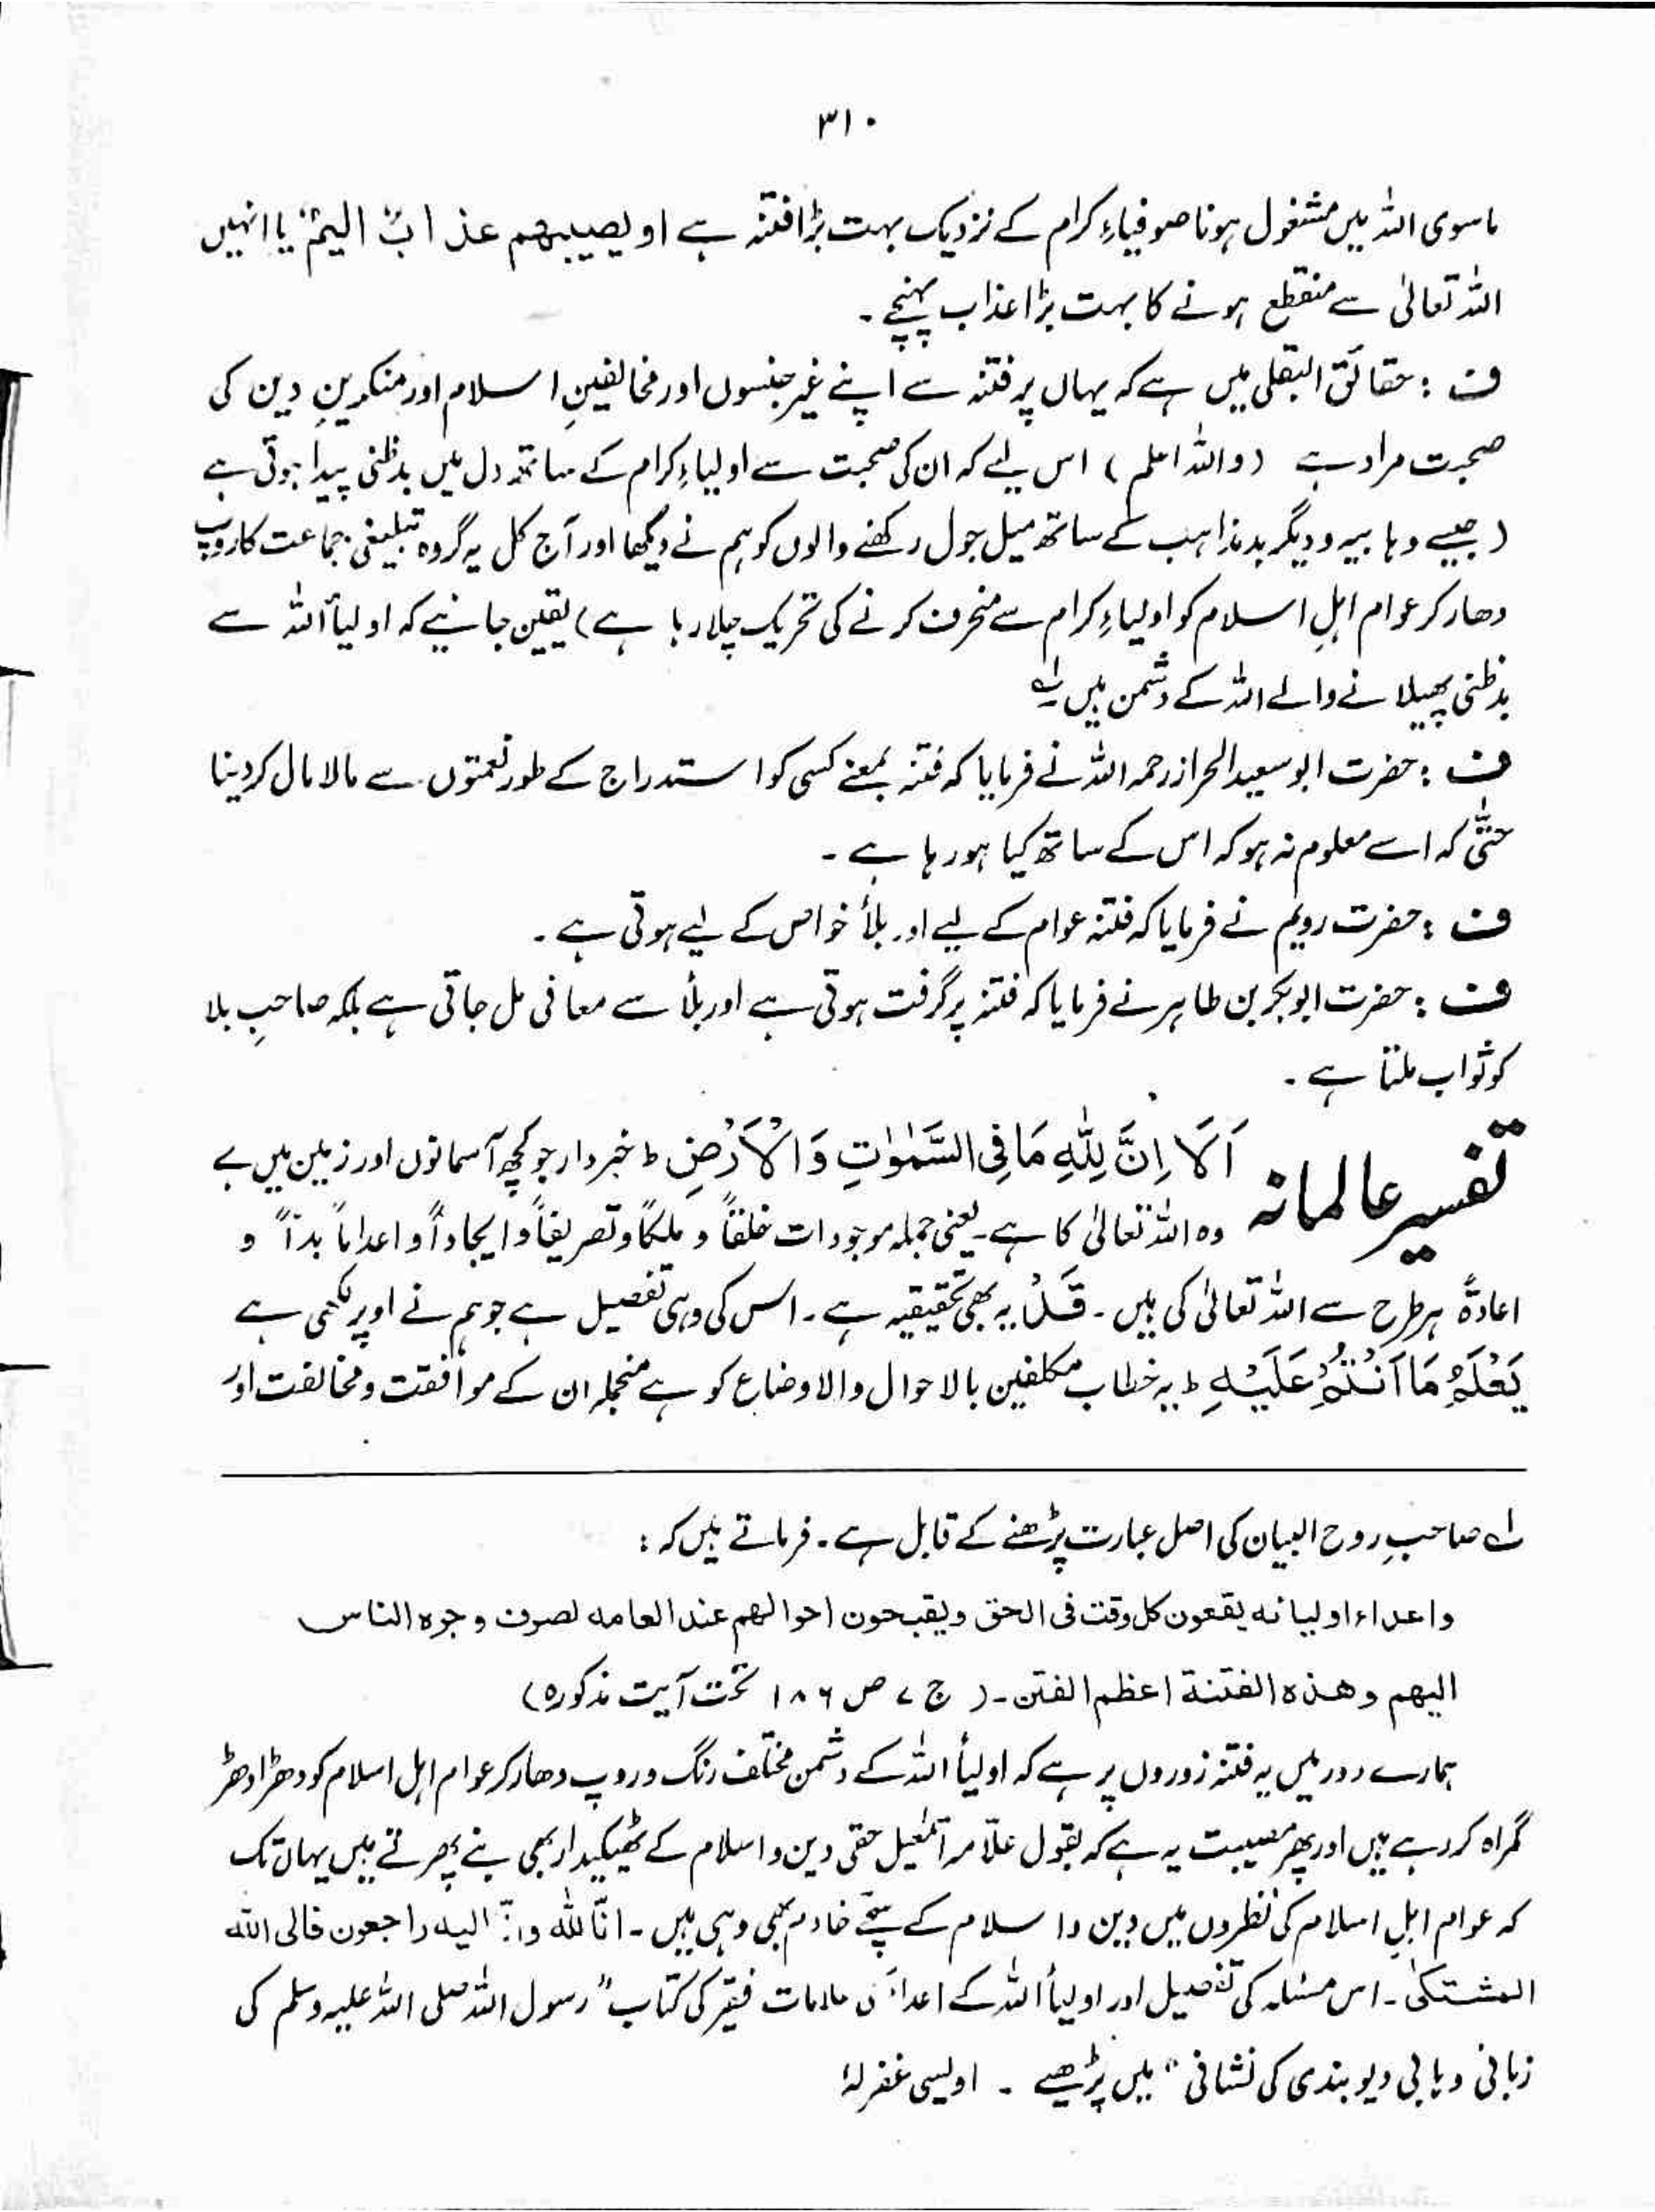 ۳۱۰
ماسوی اللہ میں مشغول ہونا صوفیاءِ کرام کے نزدیک بہت بڑا فتنہ ہے او یصیبھم عذابٌ الیمٌ یا انہیں
اللہ تعالیٰ سے منقطع ہونے کا بہت بڑا عذاب پہنچے ۔
ف : حقائق البقلی میں ہے کہ یہاں پر فتنہ سے اپنے غیر جنسوں اور مخالفینِ اسلام اور منکرینِ دین کی
صحبت مراد ہے (واللہ اعلم) اس لیے کہ ان کی صحبت سے اولیاءِ کرام کے ساتھ دل میں بدظنی پیدا ہوتی ہے
(جیسے وہابیہ و دیگر بدمذاہب کے ساتھ میل جول رکھنے والوں کو ہم نے دیکھا اور آج کل یہ گروہ تبلیغی جماعت کا روپ
دھار کر عوام اہلِ اسلام کو اولیاءِ کرام سے منحرف کرنے کی تحریک چلا رہا ہے) یقین جانیے کہ اولیأ اللہ سے
بدظنی پھیلانے والے اللہ کے دشمن ہیں۔ لہ
ف : حضرت ابو سعید الحراز رحمہ اللہ نے فرمایا کہ فتنہ بمعنے کسی کو استدراج کے طور نعمتوں سے مالا مال کر دینا
حتّٰی کہ اسے معلوم نہ ہو کہ اس کے ساتھ کیا ہو رہا ہے ۔
ف : حضرت رویم نے فرمایا کہ فتنہ عوام کے لیے اور بلأ خواص کے لیے ہوتی ہے ۔
ف : حضرت ابوبکر بن طاہر نے فرمایا کہ فتنہ پر گرفت ہوتی ہے اور بلأ سے معافی مل جاتی ہے بلکہ صاحبِ بلا
کو ثواب ملتا ہے ۔
تفسیر عالمانہ اَلَآ اِنَّ لِلّٰهِ مَا فِی السَّمٰوٰتِ وَالْاَرْضِ ط خبردار جو کچھ آسمانوں اور زمین میں ہے
وہ اللہ تعالیٰ کا ہے۔ یعنی جملہ موجودات خلقاً و ملکاً و تصریفاً و ایجاداً و اعداماً بدأً و
اعادۃً ہر طرح سے اللہ تعالیٰ کی ہیں ۔ قَدْ یہ بھی تحقیقیہ ہے ۔ اس کی وہی تفصیل ہے جو ہم نے اوپر لکھی ہے
یَعْلَمُ مَا اَنْتُمْ عَلَیْهِ ط یہ خطاب مکلفین بالاحوال والاوضاع کو ہے منجملہ ان کے موافقت و مخالفت اور
لہ صاحبِ روح البیان کی اصل عبارت پڑھنے کے قابل ہے ۔ فرماتے ہیں کہ :
واعداء اولیائہ یقعون کل وقت فی الحق ویقبحون احوالھم عند العامه لصرف وجوہ الناس
الیھم وھذہ الفتنة اعظم الفتن ۔ (ج ۷ ص ۱۸۶ تحت آیت مذکورہ)
ہمارے دور میں یہ فتنہ زوروں پر ہے کہ اولیأ اللہ کے دشمن مختلف رنگ و روپ دھار کر عوام اہل اسلام کو دھڑا دھڑ
گمراہ کر رہے ہیں اور پھر مصیبت یہ ہے کہ بقول علّامہ اسمٰعیل حقی دین و اسلام کے ٹھیکیدار بھی بنے پھرتے ہیں یہاں تک
کہ عوام اہلِ اسلام کی نظروں میں دین و اسلام کے سچّے خادم بھی وہی ہیں ۔ انّا للہ وانّا الیہ راجعون فالی اللہ
المشتکیٰ ۔ اس مسئلہ کی تفصیل اور اولیأ اللہ کے اعداء کی علامات فقیر کی کتاب " رسول اللہ صلی اللہ علیہ وسلم کی
زبانی وہابی دیوبندی کی نشانی " میں پڑھیے ۔ اویسی غفرلہٗ